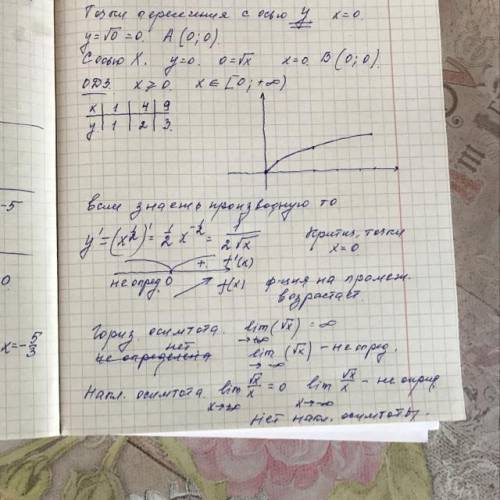 Точки пересечения с осью у x=0.
y=√0=0. A(0;0).
С осью X. y=0. 0=√x x=0. B(0;0).
ОДЗ. x⩾0. x∈[0;+∞)
x | 1 | 4 | 9
y | 1 | 2 | 3.
если знаеть производную то
y'=(x^{1/2})'=1/2 x^{-1/2}=1/(2√x) Критич. точки
x=0
+. f'(x)
не опред. 0 f(x) ф-ция на промеж.
возрастает
Гориз. асимтота. lim (√x)=∞
→+∞
нет
не определена lim (√x) - не опред.
→-∞
Накл. асимтота. lim √x/x=0 lim √x/x - не опред
x→∞ x→-∞
нет накл. асимтоты.
-5
0
x=-5/3